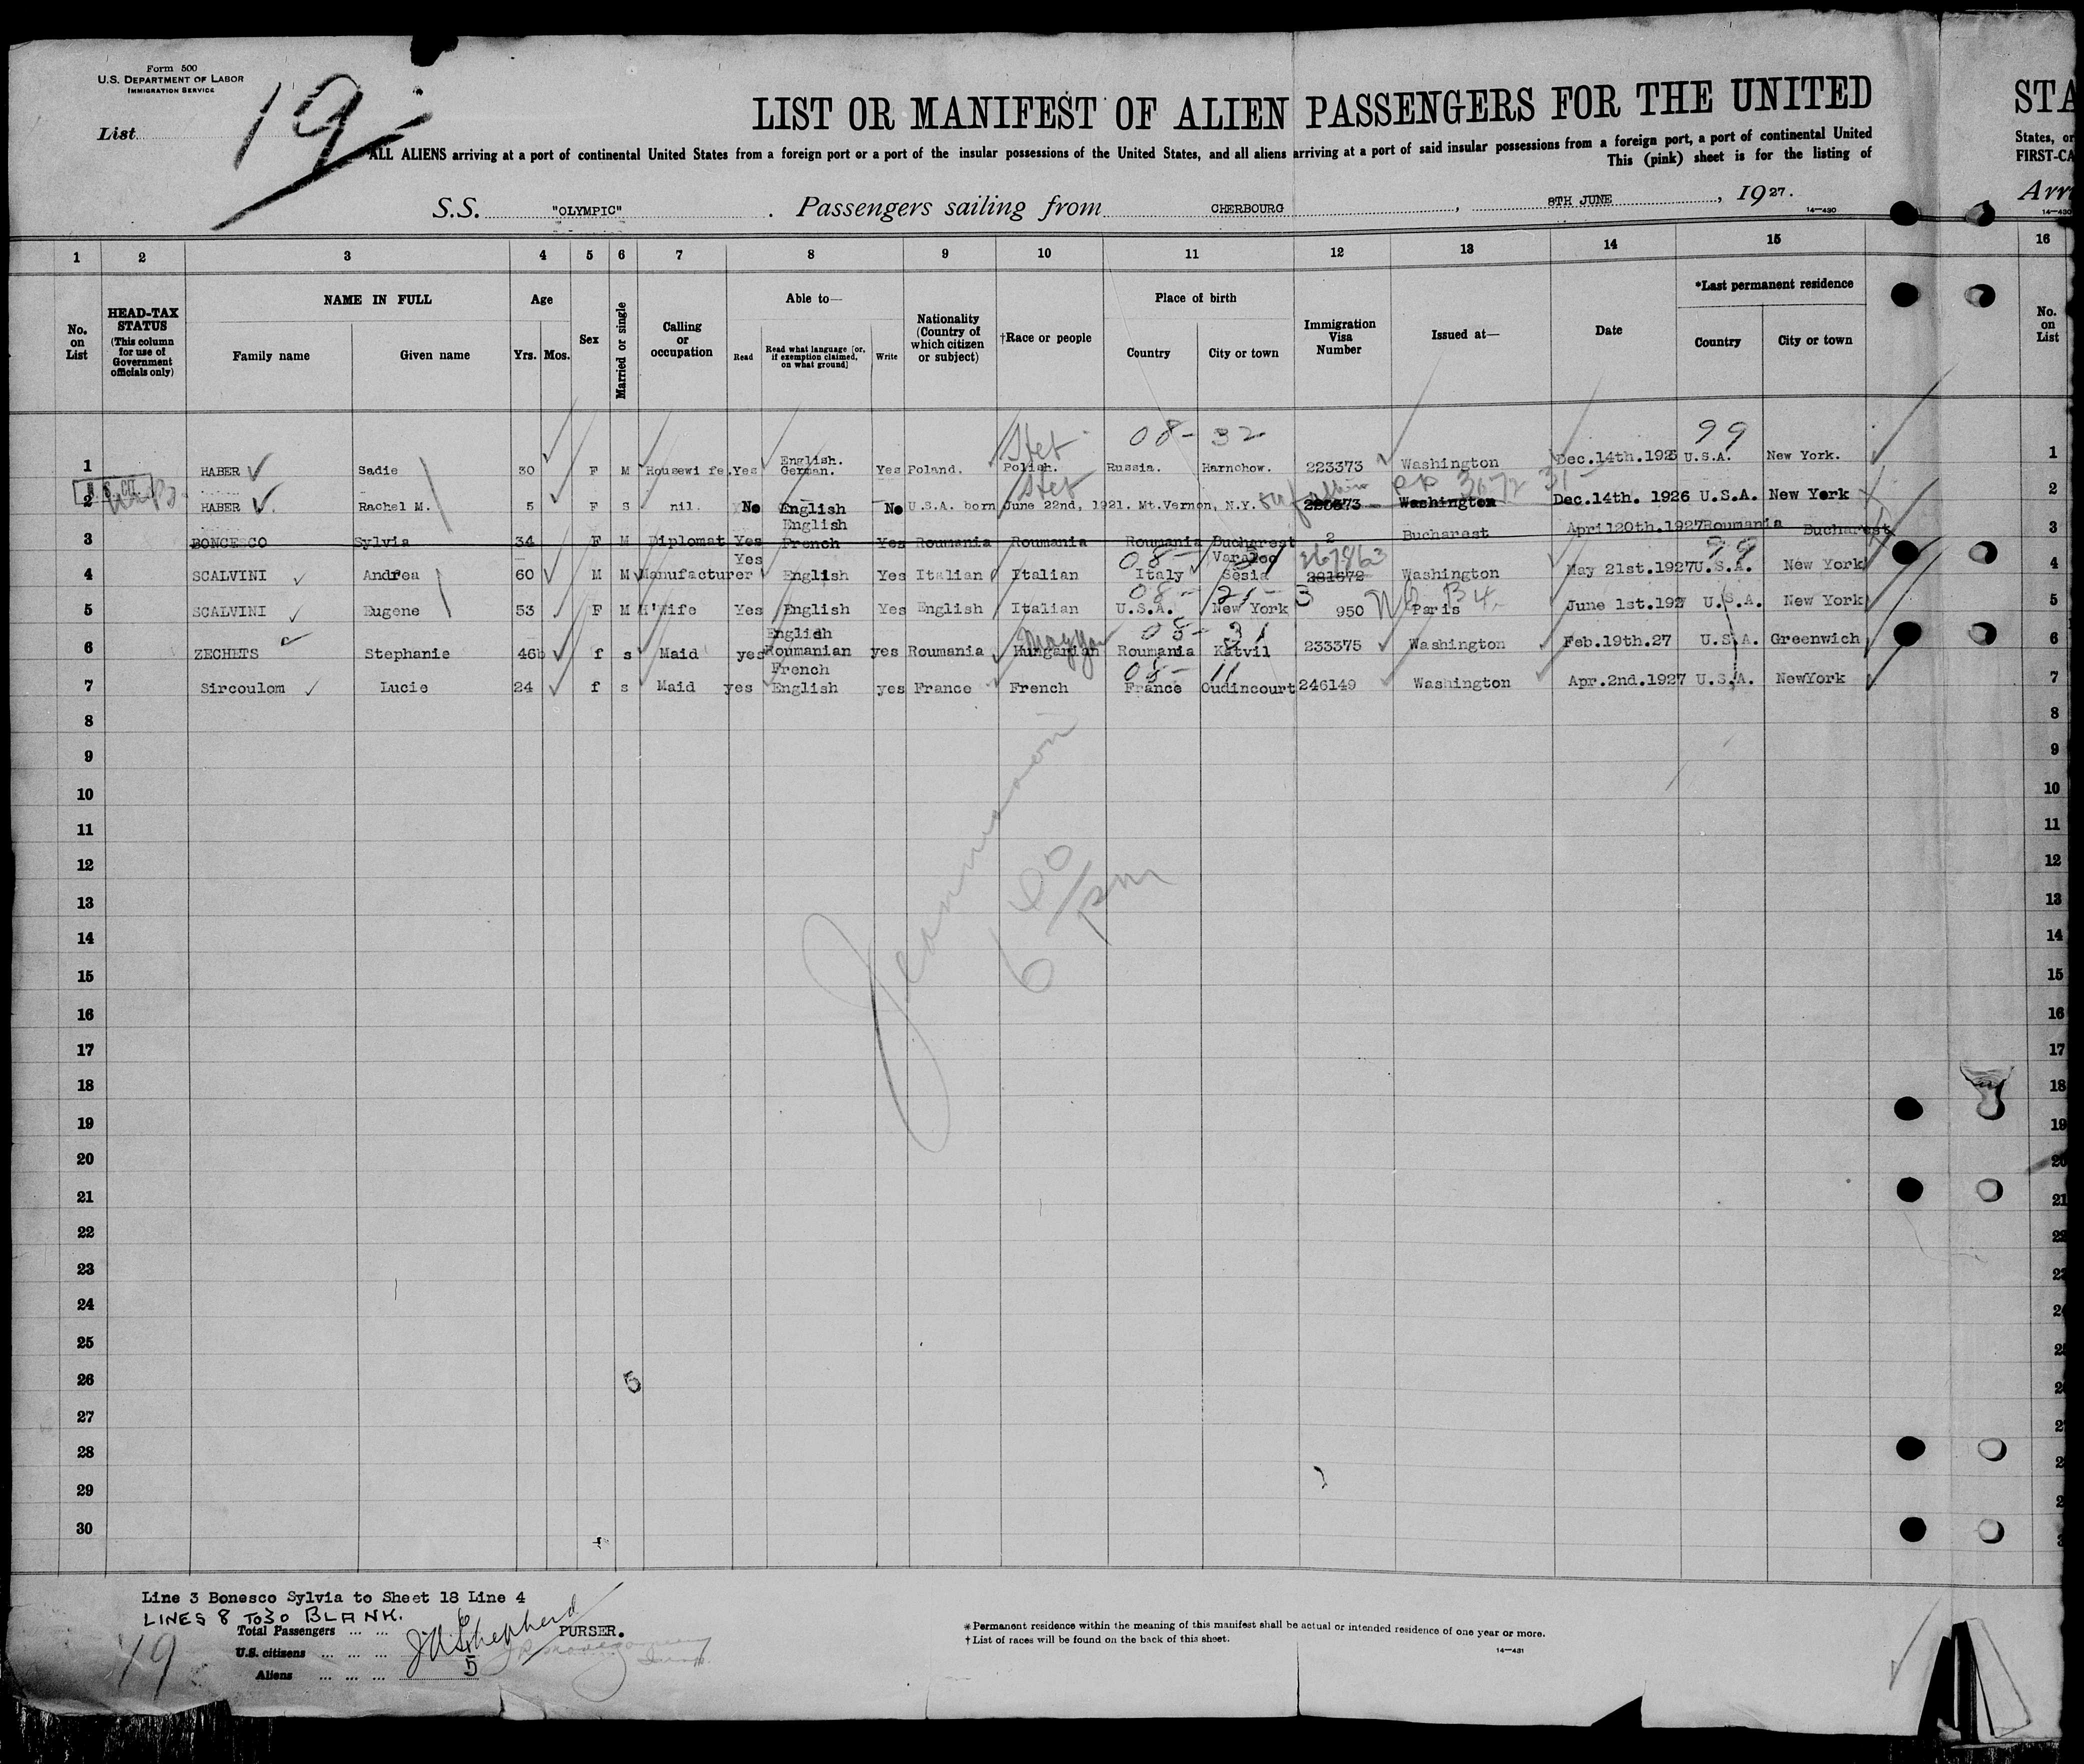 Form 500
U.S. DEPARTMENT OF LABOR
IMMIGRATION SERVICE
List 19
LIST OR MANIFEST OF ALIEN PASSENGERS FOR THE UNITED STA
ALL ALIENS arriving at a port of continental United States from a foreign port or a port of the insular possessions of the United States, and all aliens arriving at a port of said insular possessions from a foreign port, a port of continental United States, or
This (pink) sheet is for the listing of FIRST-CA
S.S. "OLYMPIC" . Passengers sailing from CHERBOURG , 8TH JUNE , 1927. Arri
14—430 14—430
1 2 3 4 5 6 7 8 9 10 11 12 13 14 15 16
No. on List
HEAD-TAX STATUS (This column for use of Government officials only)
NAME IN FULL
Family name Given name
Age
Yrs. Mos.
Sex
Married or single
Calling or occupation
Able to—
Read Read what language [or, if exemption claimed, on what ground] Write
Nationality (Country of which citizen or subject)
†Race or people
Place of birth
Country City or town
Immigration Visa Number
Issued at—
Date
*Last permanent residence
Country City or town
No. on List
Stet 08- 32 99
1 HABER Sadie 30 F M Housewife. Yes English. German. Yes Poland. Polish. Russia. Harnchow. 223373 Washington Dec.14th.1926 U.S.A. New York. 1
Stet
2 HABER Rachel M. 5 F S nil. No English No U.S.A. born June 22nd, 1921. Mt.Vernon, N.Y. 223373 Washington Dec.14th. 1926 U.S.A. New York 2
3 BONCESCO Sylvia 34 F M Diplomat Yes English French Yes Roumania Roumania Roumania Bucharest 2 Bucharest April 20th.1927 Roumania Bucharest 3
08- 99
4 SCALVINI Andrea 60 M M Manufacturer Yes English Yes Italian Italian Italy Varaloo Sesia 267863 Washington May 21st.1927 U.S.A. New York 4
08- 21-
5 SCALVINI Eugene 53 F M H'Wife Yes English Yes English Italian U.S.A. New York 950 Paris June 1st.192 U.S.A. New York 5
08- 31
6 ZECHETS Stephanie 46 f s Maid yes English Roumanian yes Roumania Hungarian Magyar Roumania Katvil 233375 Washington Feb.19th.27 U.S.A. Greenwich 6
08- 11
7 Sircoulom Lucie 24 f s Maid yes French English yes France French France Oudincourt 246149 Washington Apr.2nd.1927 U.S.A. NewYork 7
8 8
9 9
10 10
11 11
12 12
6 00/pm
13 13
14 14
15 15
16 16
17 17
18 18
19 19
20 20
21 21
22 22
23
24
25
26 5
27
28
29
30
Line 3 Bonesco Sylvia to Sheet 18 Line 4
LINES 8 TO 30 BLANK.
Total Passengers ... ... 6
PURSER.
U.S. citizens ... ... ... 1
Aliens ... ... ... 5
19
*Permanent residence within the meaning of this manifest shall be actual or intended residence of one year or more.
†List of races will be found on the back of this sheet.
14—431